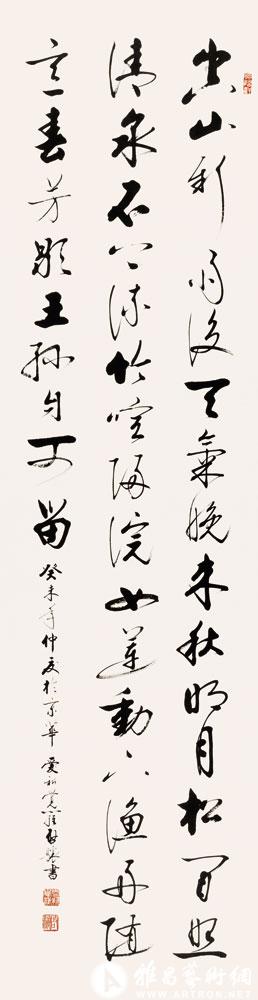 空山新雨後天氣晚来秋明月松間照
清泉石上流竹喧歸浣女蓮動下漁舟随
意春芳歇王孫自可留 癸未年仲夏於京華 愛新覺羅啟驤書
雅昌藝術網
WWW.ARTRON.NET